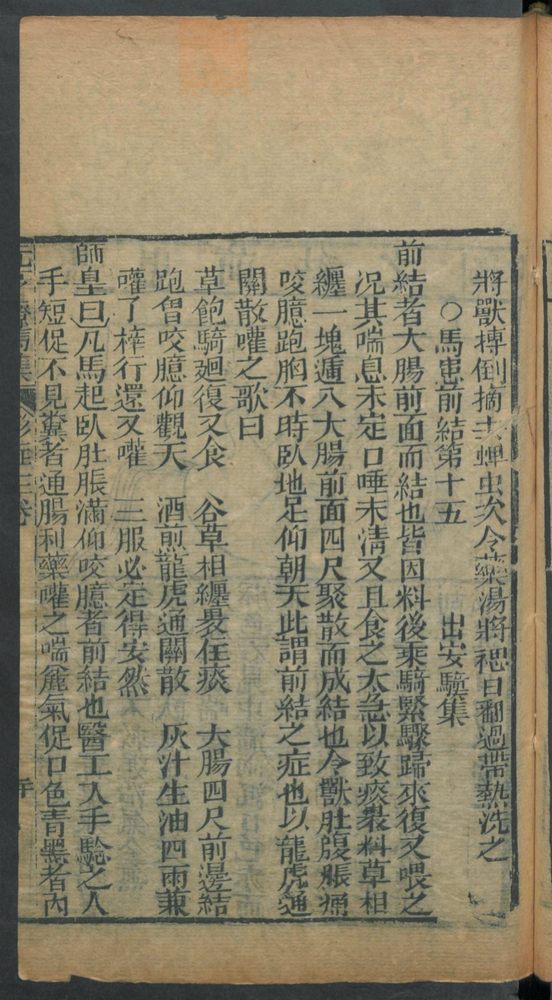 將獸搏倒摘去蟬虫次令藥湯將袍白翻過帶熱洗之
○馬患前結第十五　出安驥集
前結者大腸前面而結也皆因料後乘騎緊驟歸來復又喂之
況其喘息未定口唾未清又且食之太急以致痰裹料草相
纏一塊遁入大腸前面四尺聚散而成結也令獸肚腹脹痛
咬臆跑胸不時臥地足仰朝天此謂前結之症也以龍虎通
關散嚾之歌曰
草飽騎廻復又食　谷草相纏裹住痰　大腸四尺前邊結
跑胷咬臆仰觀天　酒煎龍虎通關散　灰汁生油四兩兼
嚾了榟行還又嚾　三服必定得安然
師皇曰凡馬起臥肚脹滿仰咬臆者前結也醫工入手驗之人
手短促不見糞者通腸利藥嚾之喘麄氣促口色青黑者內